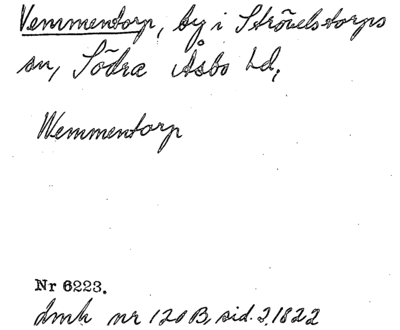 Vemmentorp, by i Strövelstorps
sn, Södra Åsbo hd,
Wemmentorp
Nr 6223.
dmk nr 120B, sid. 2, 1822